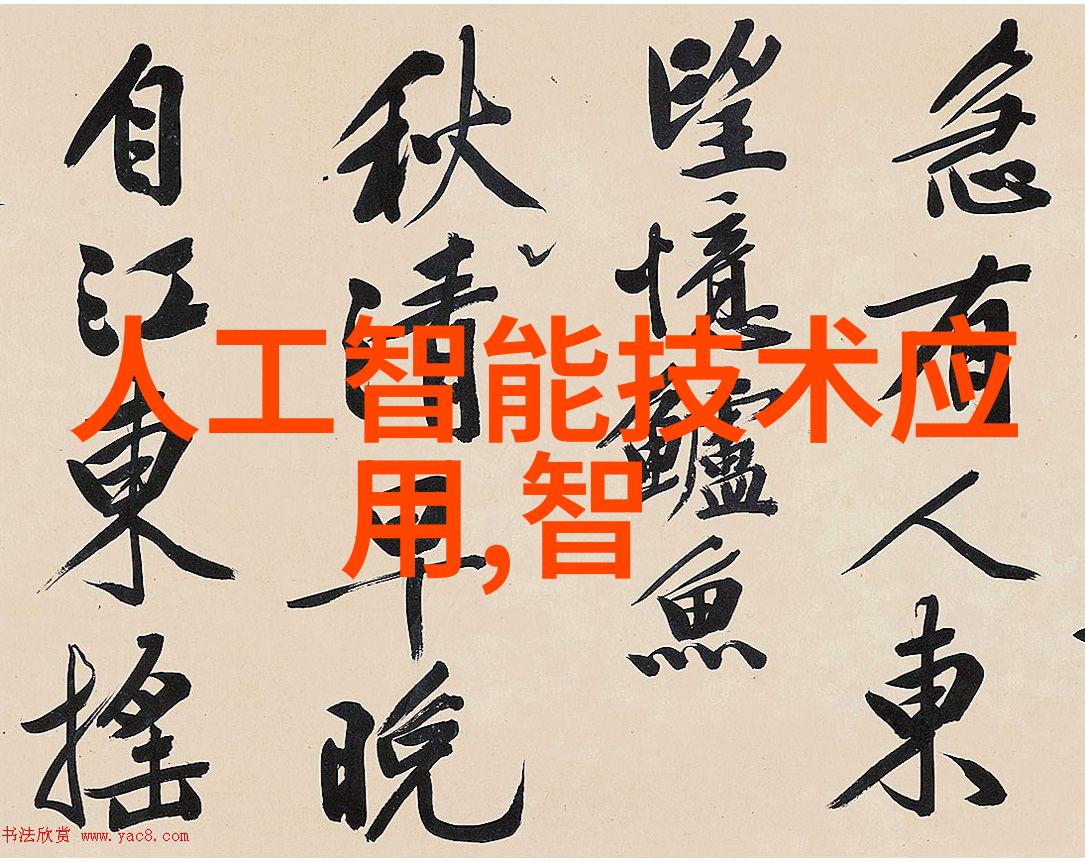 人工智能技术应
用,智
急有人東
望憶鱸魚
秋清早晚
自江東搖
书法欣赏 www.yac8.com